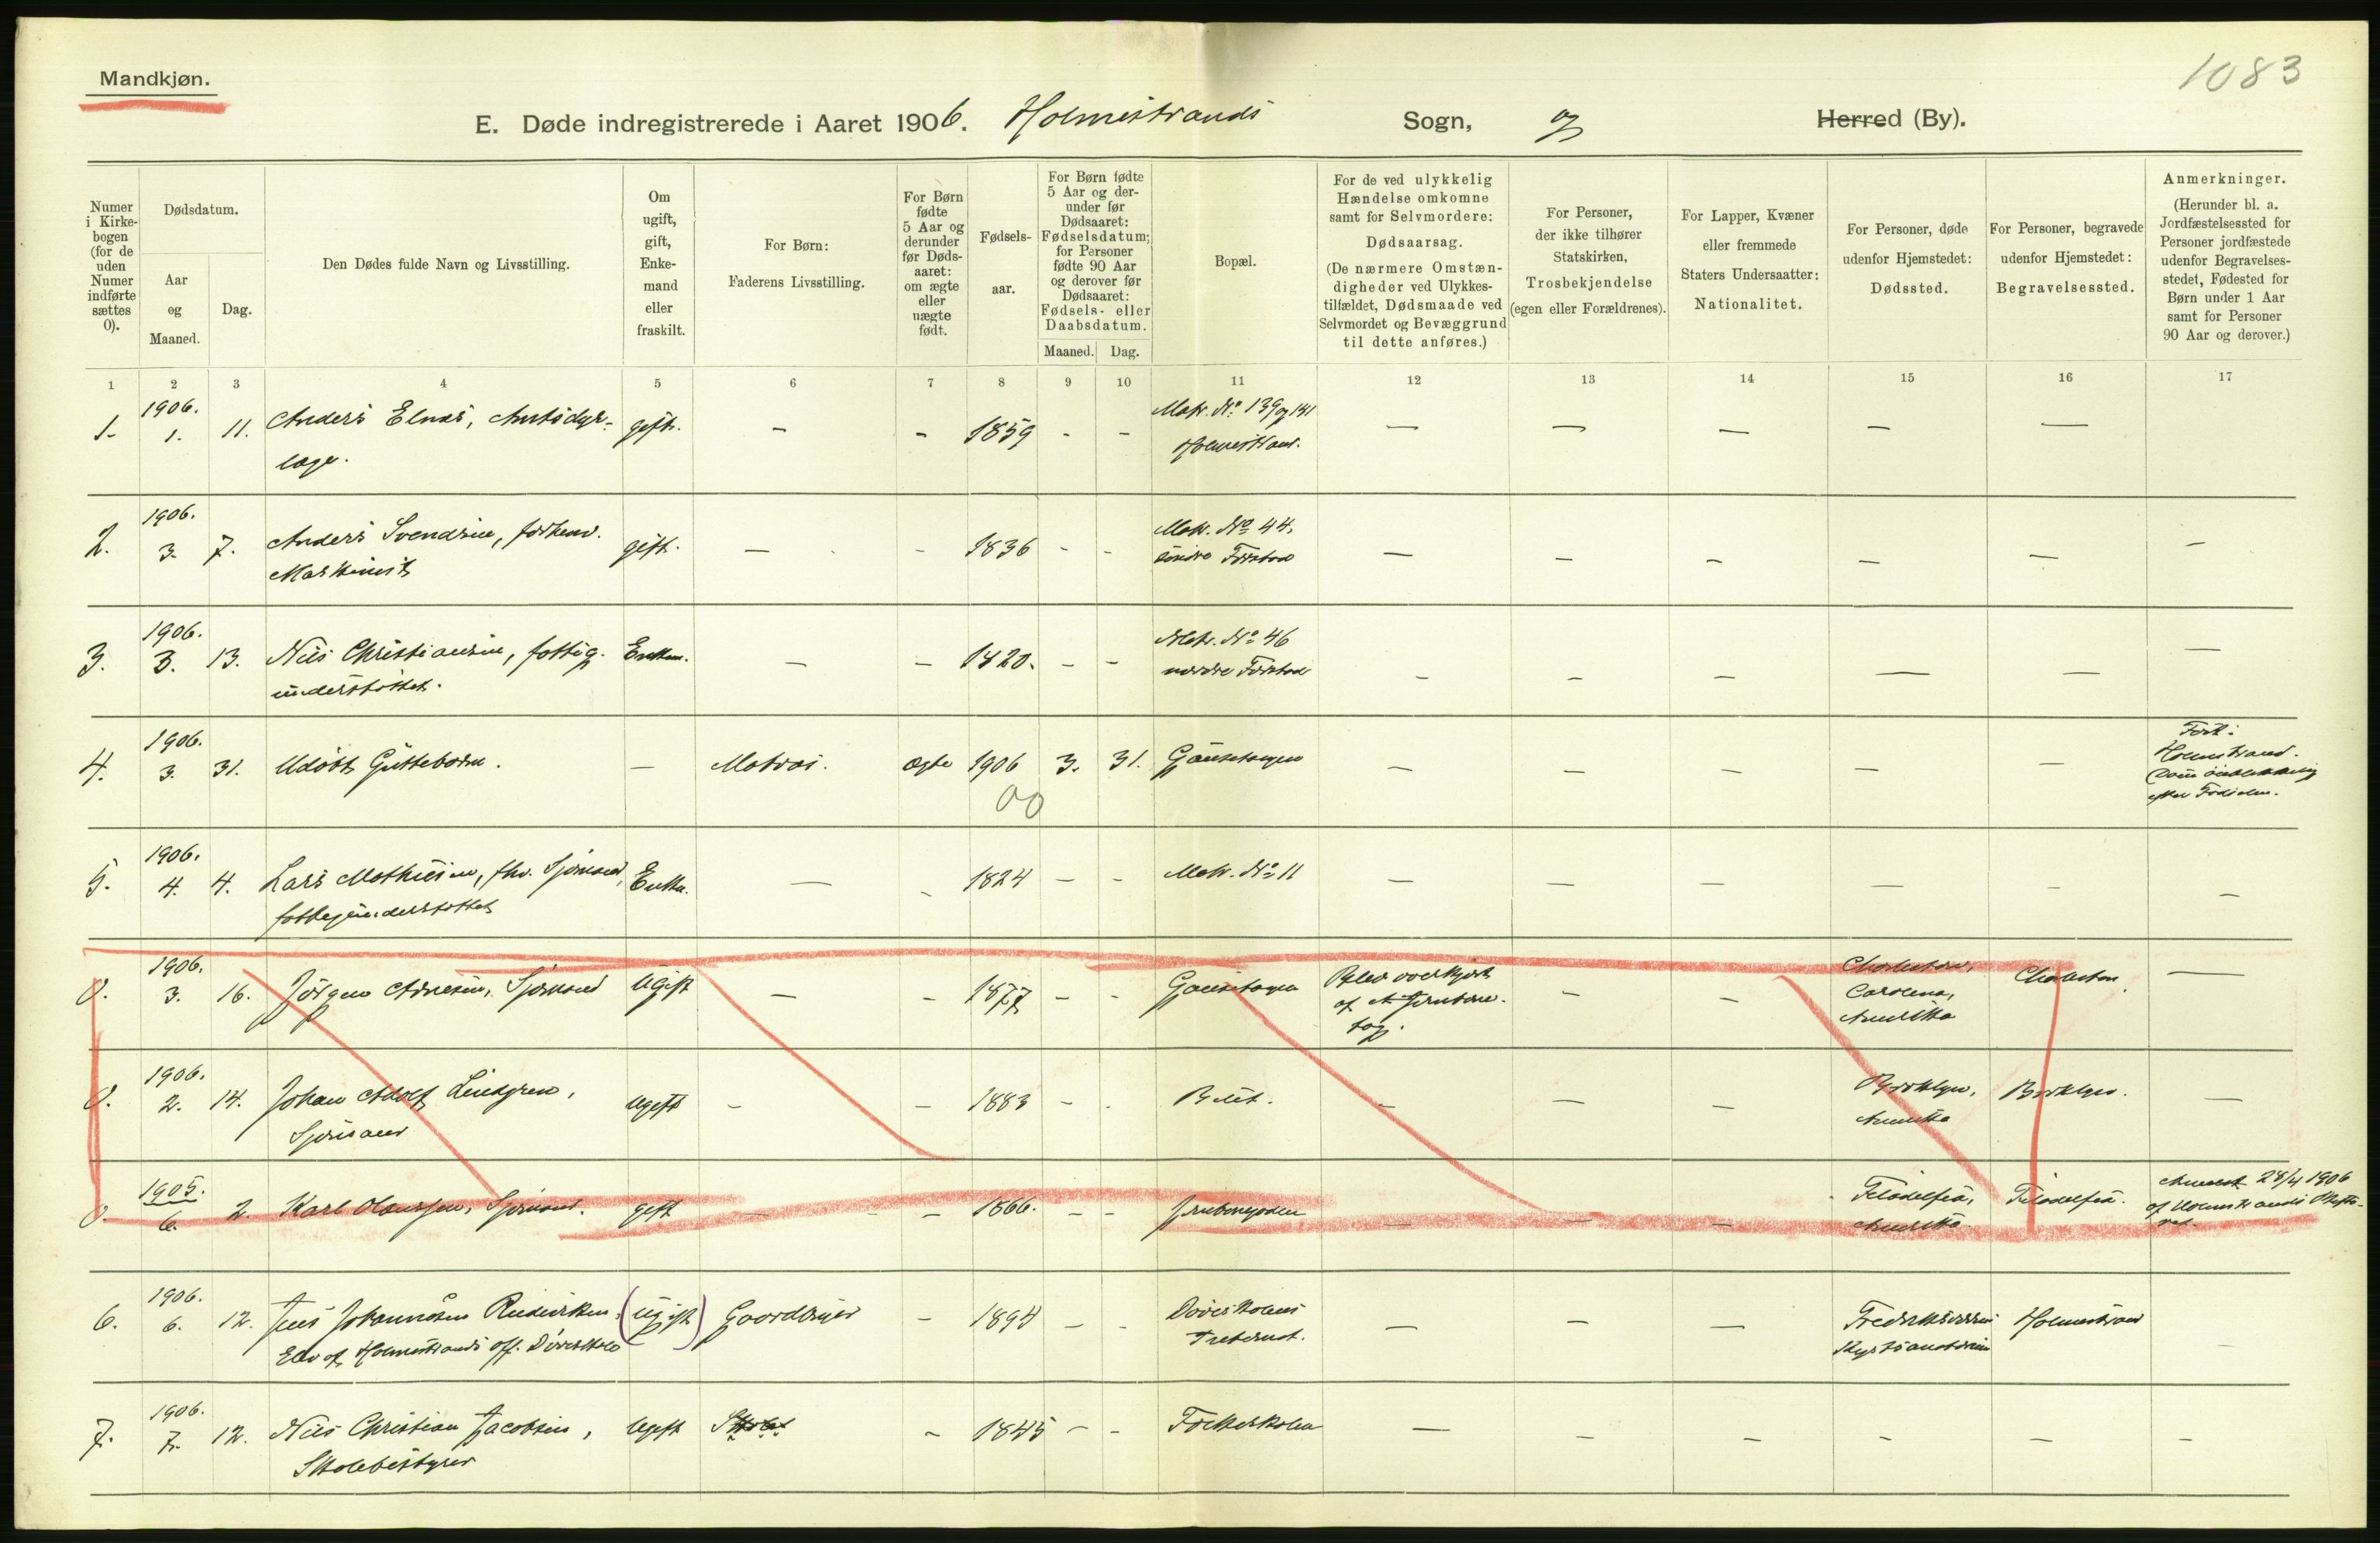 Mandkjøn.
1083
E. Døde indregistrerede i Aaret 1906. Holmestrands Sogn, og Herred (By).
Numer i Kirkebogen (for de uden Numer indførte sættes 0).
Dødsdatum.
Aar og Maaned.
Dag.
Den Dødes fulde Navn og Livsstilling.
Om ugift, gift, Enkemand eller fraskilt.
For Børn: Faderens Livsstilling.
For Børn fødte 5 Aar og derunder før Dødsaaret: om ægte eller uægte født.
Fødselsaar.
For Børn fødte 5 Aar og derunder før Dødsaaret: Fødselsdatum; for Personer fødte 90 Aar og derover før Dødsaaret: Fødsels- eller Daabsdatum.
Maaned. Dag.
Bopæl.
For de ved ulykkelig Hændelse omkomne samt for Selvmordere: Dødsaarsag. (De nærmere Omstændigheder ved Ulykkestilfældet, Dødsmaade ved Selvmordet og Bevæggrund til dette anføres.)
For Personer, der ikke tilhører Statskirken, Trosbekjendelse (egen eller Forældrenes).
For Lapper, Kvæner eller fremmede Staters Undersaatter: Nationalitet.
For Personer, døde udenfor Hjemstedet: Dødssted.
For Personer, begravede udenfor Hjemstedet: Begravelsessted.
Anmerkninger. (Herunder bl. a. Jordfæstelsessted for Personer jordfæstede udenfor Begravelsesstedet, Fødested for Børn under 1 Aar samt for Personer 90 Aar og derover.)
1 2 3 4 5 6 7 8 9 10 11 12 13 14 15 16 17
1. 1906. 1. 11. Anders Elnæs, Amtsdyrlæge. gift. — - 1859 - - Matr. No 139 og 141 Holmestrand. — — — — —
2. 1906. 3. 7. Anders Svendsen, forhenv. Maskinist gift. — - 1836 - - Matr. No 44, søndre Forstad — — — — — —
3. 1906. 3. 13. Nils Christiansen, fattigunderstøttet. Enkem. — - 1820. - - Matr. No 46 nordre Forstad — — — — — —
4. 1906. 3. 31. Udøbt Guttebarn. — Matros. ægte 1906 3. 31. Gausetangen — — — — — Født i Holmestrand. (Døde øieblikkelig efter Fødselen.
00
5. 1906. 4. 4. Lars Mathisen, fhv. Sjømand, fattigunderstøttet Enkem. — - 1824 - - Matr. No 11 — — — — — —
0. 1906. 3. 16. Jörgen Arnesen, Sjømand Ugift — - 1877 - - Gausetangen Blev overkjørt af et Jernbanetog. — — Charleston, Carolina, Amerika Charleston. —
0. 1906. 2. 14. Johan Adolf Lindgren, Sjømand Ugift - - 1883 - - — — — Brooklyn, Amerika Brooklyn. —
0. 1905. 6. 2. Karl Olaussen, Sjømand. gift — - 1866. - - Jernbanegaden — — — Filadelfia, Amerika Filadelfia. Anmeldt 28/4 1906 af Holmestrands Skifteret.
6. 1906. 6. 12. Jens Johannesen Elev af Holmestrands off. Døveskole (ugift) Gaardbruger - 1894 - - Døveskolens — — — Holmestrand
7. 1906. 7. 12. Nils Christian Jacobsen, Skolebestyrer Ugift - 1845 - - — — — — — —